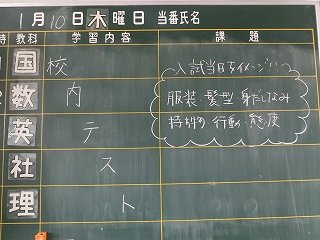 1月10日木曜日 当番氏名
時 教科 学習内容 課題
国 校
数 内
英 テ
社 ス
理 ト
入試当日をイメージ!!
服装・髪型・身だしなみ
持ち物・行動・態度